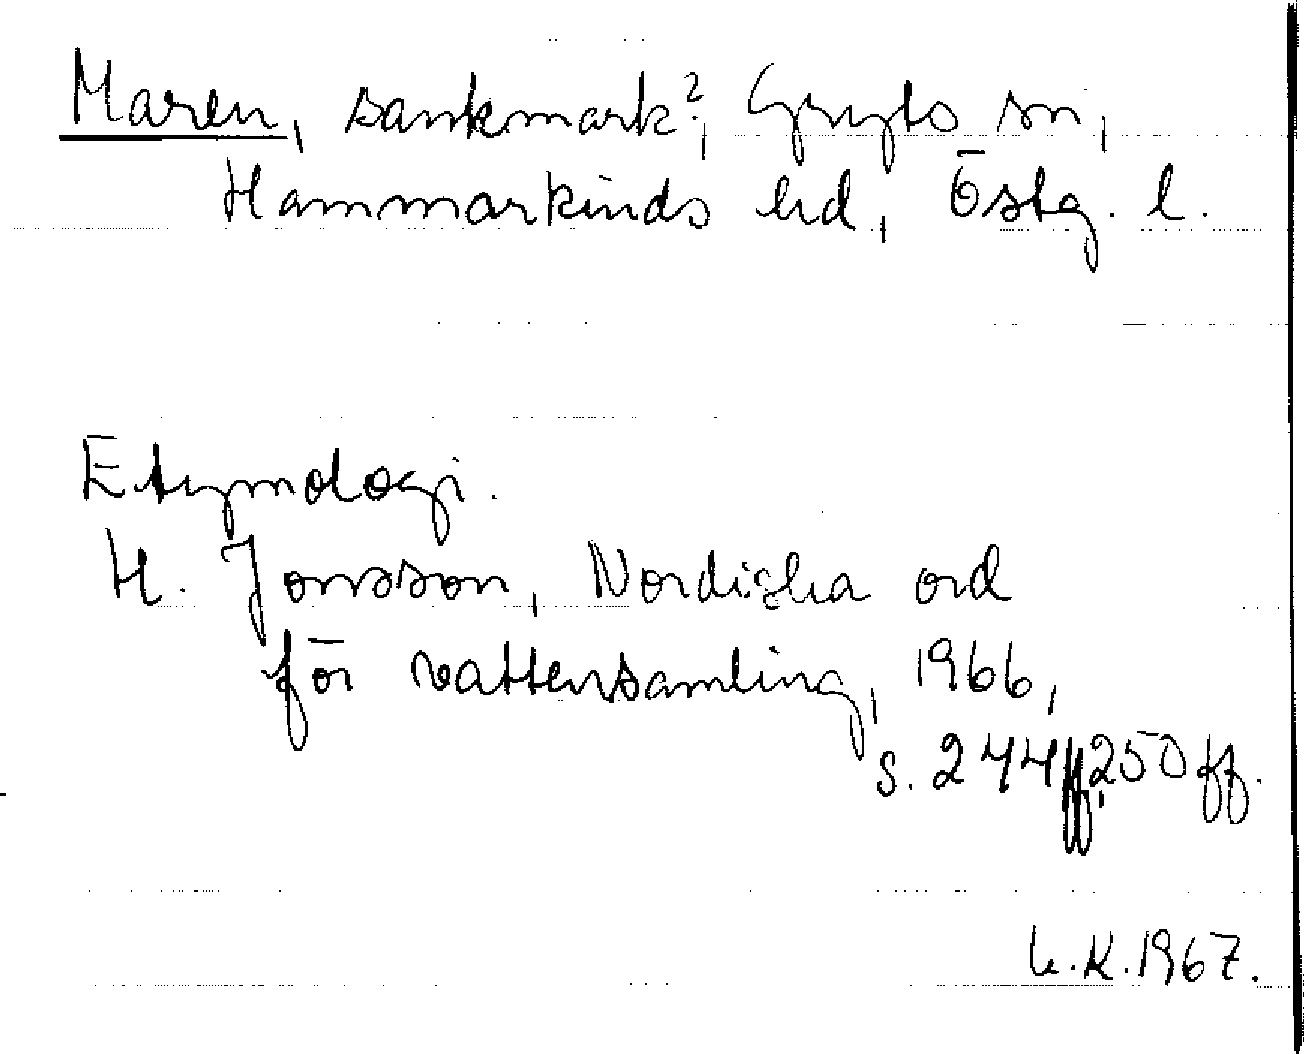 Maren, sankmark?, Gryts sn,
Hammarkinds hd, Östg. l.
Etymologi.
H. Jonsson, Nordiska ord
för vattensamling, 1966,
s. 244ff, 250ff.
L.K. 1967.